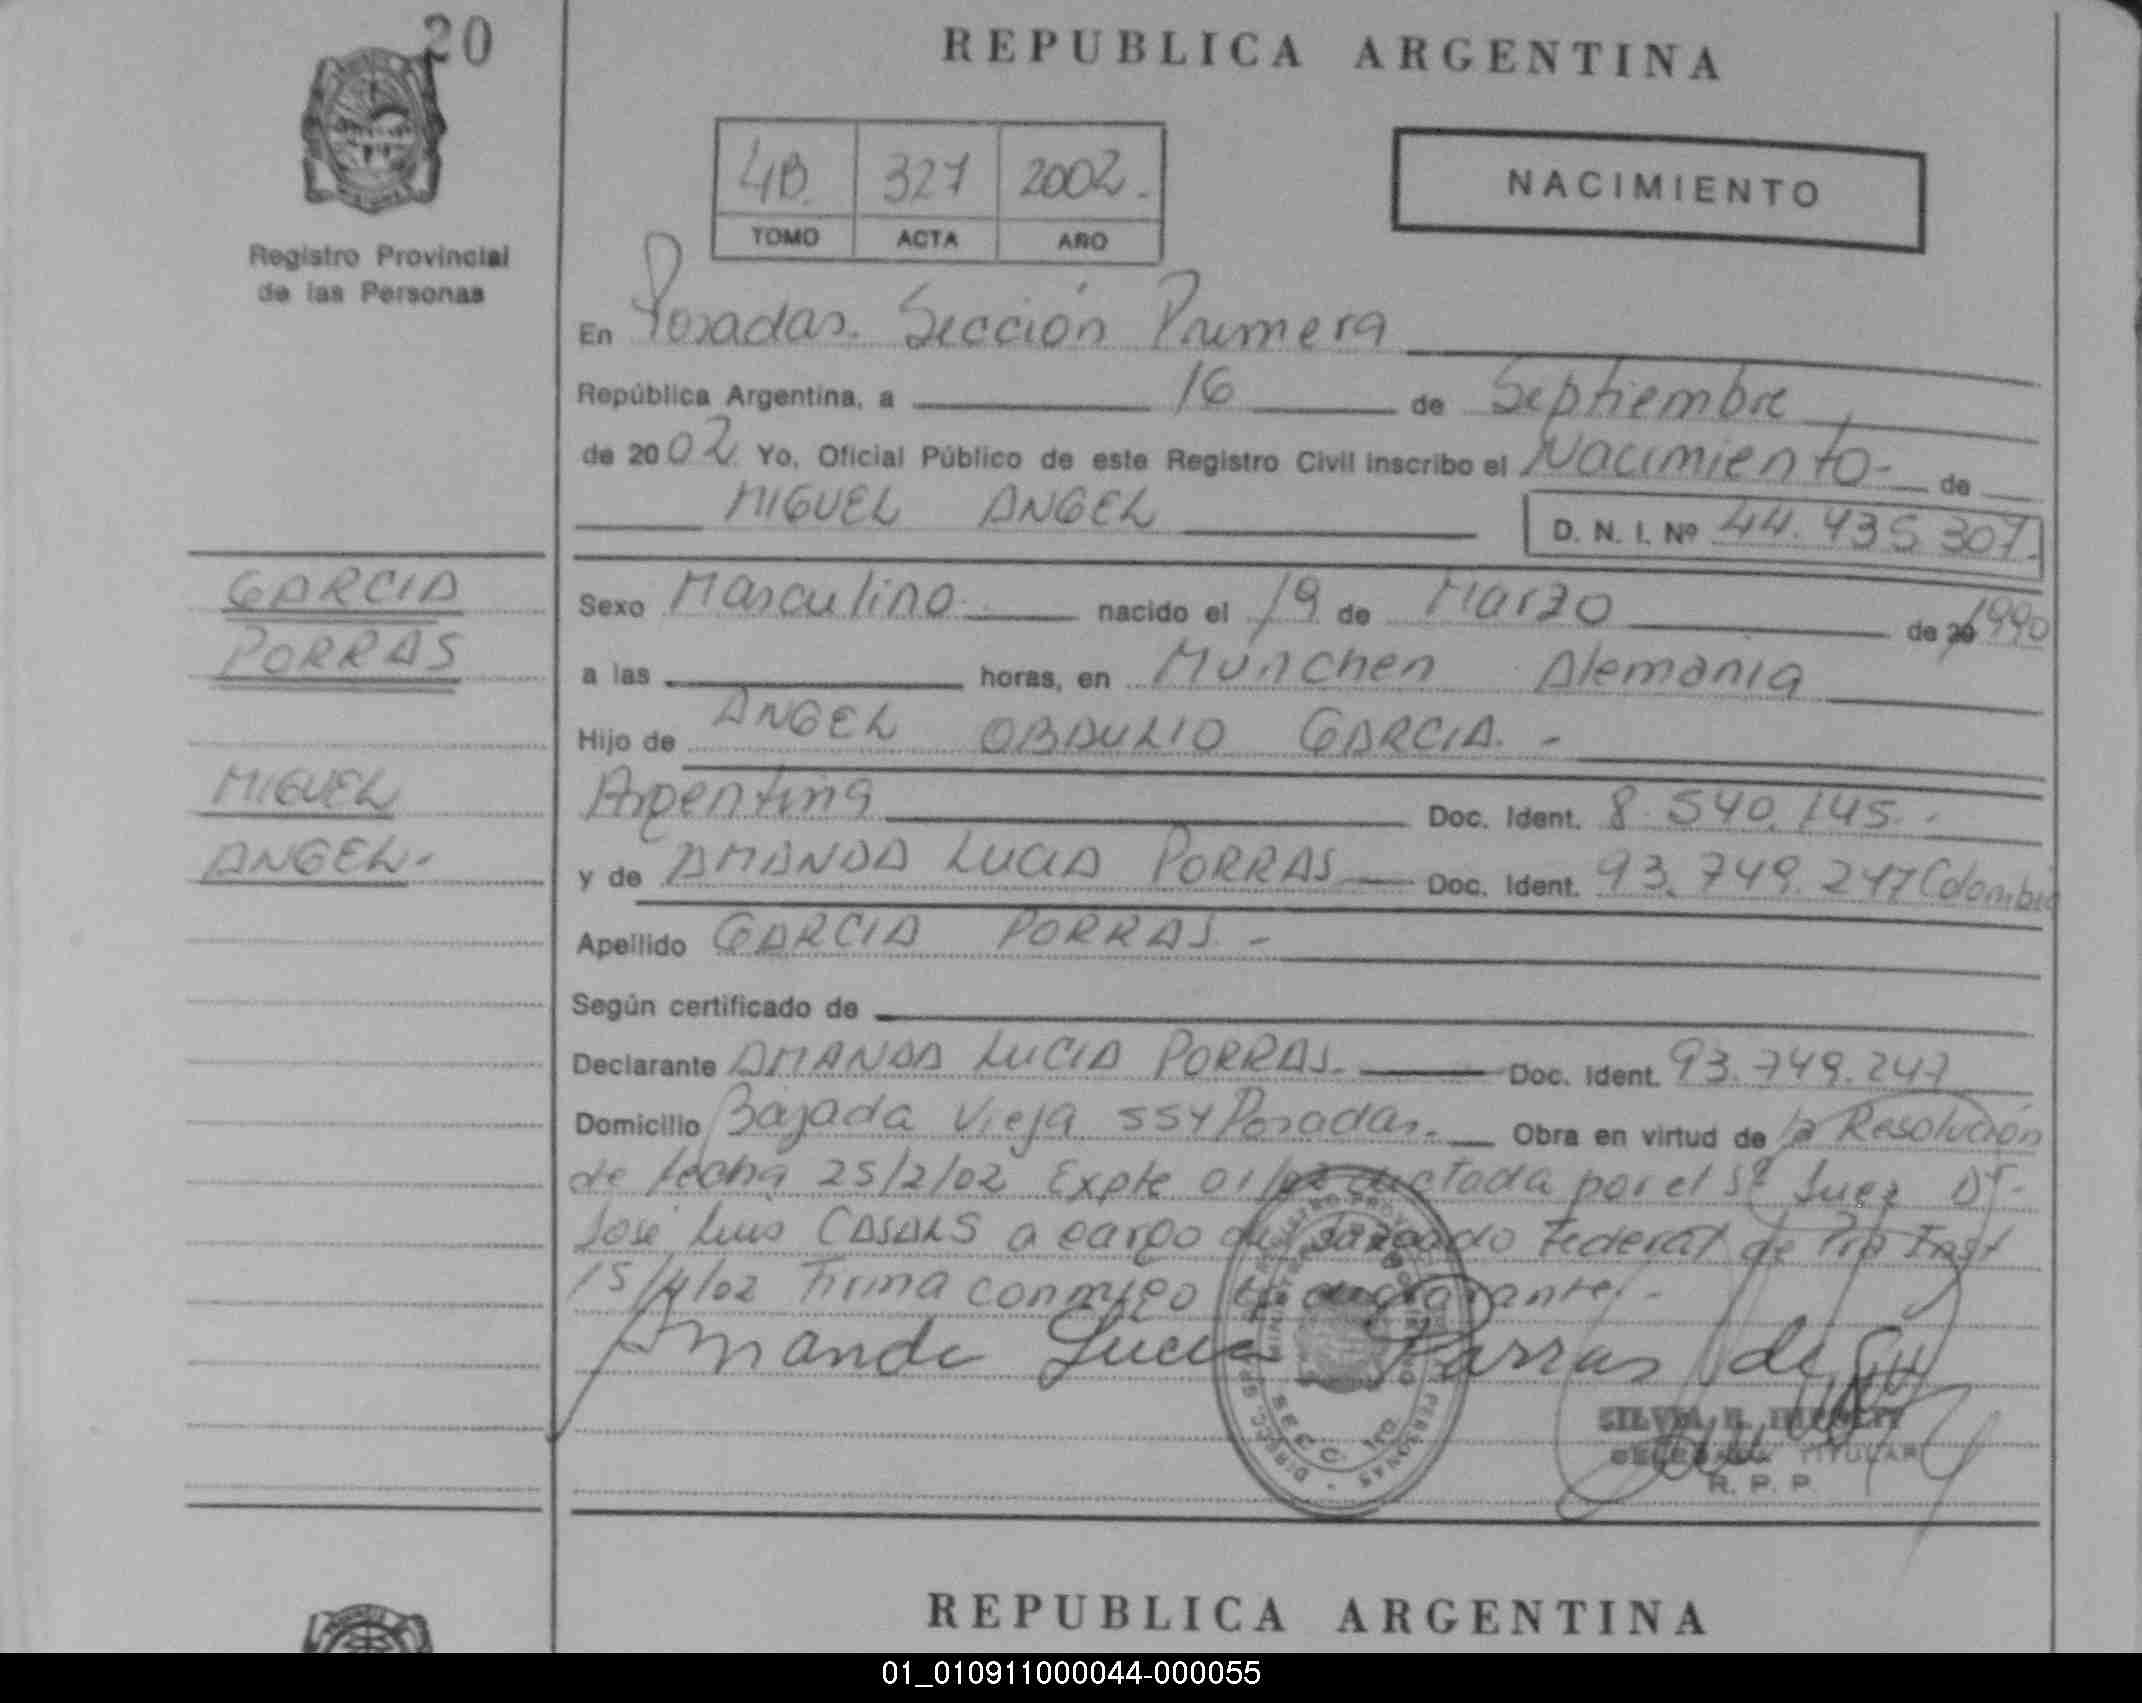 20
REPUBLICA ARGENTINA
4B. 327 2002.
TOMO ACTA AÑO
NACIMIENTO
Registro Provincial
de las Personas
En Posadas. Sección Primera
República Argentina, a 16 de Septiembre
de 2002 Yo, Oficial Público de este Registro Civil inscribo el Nacimiento- de
MIGUEL ANGEL D. N. I. Nº 44.435.307.
GARCIA
PORRAS
MIGUEL
ANGEL.
Sexo Masculino nacido el 19 de Marzo de 20 1990
a las horas, en Munchen Alemania
Hijo de ANGEL OBDULIO GARCIA. -
Argentina Doc. Ident. 8.540.145.-
y de AMANDA LUCIA PORRAS Doc. Ident. 93.749.247 Colombia
Apellido GARCIA PORRAS. -
Según certificado de
Declarante AMANDA LUCIA PORRAS. Doc. Ident. 93.749.247
Domicilio Bajada Vieja 554 Posadas. Obra en virtud de la Resolución
de fecha 25/2/02 Expte 01/02 dictada por el Sr Juez Dr.
José Luis CASALS a cargo del Juzgado Federal de Pra Inst
15/4/02 Firma conmigo la declarante.-
Amanda Lucia Porras de
SILVIA
TITULAR
R. P. P.
REPUBLICA ARGENTINA
01_010911000044-000055